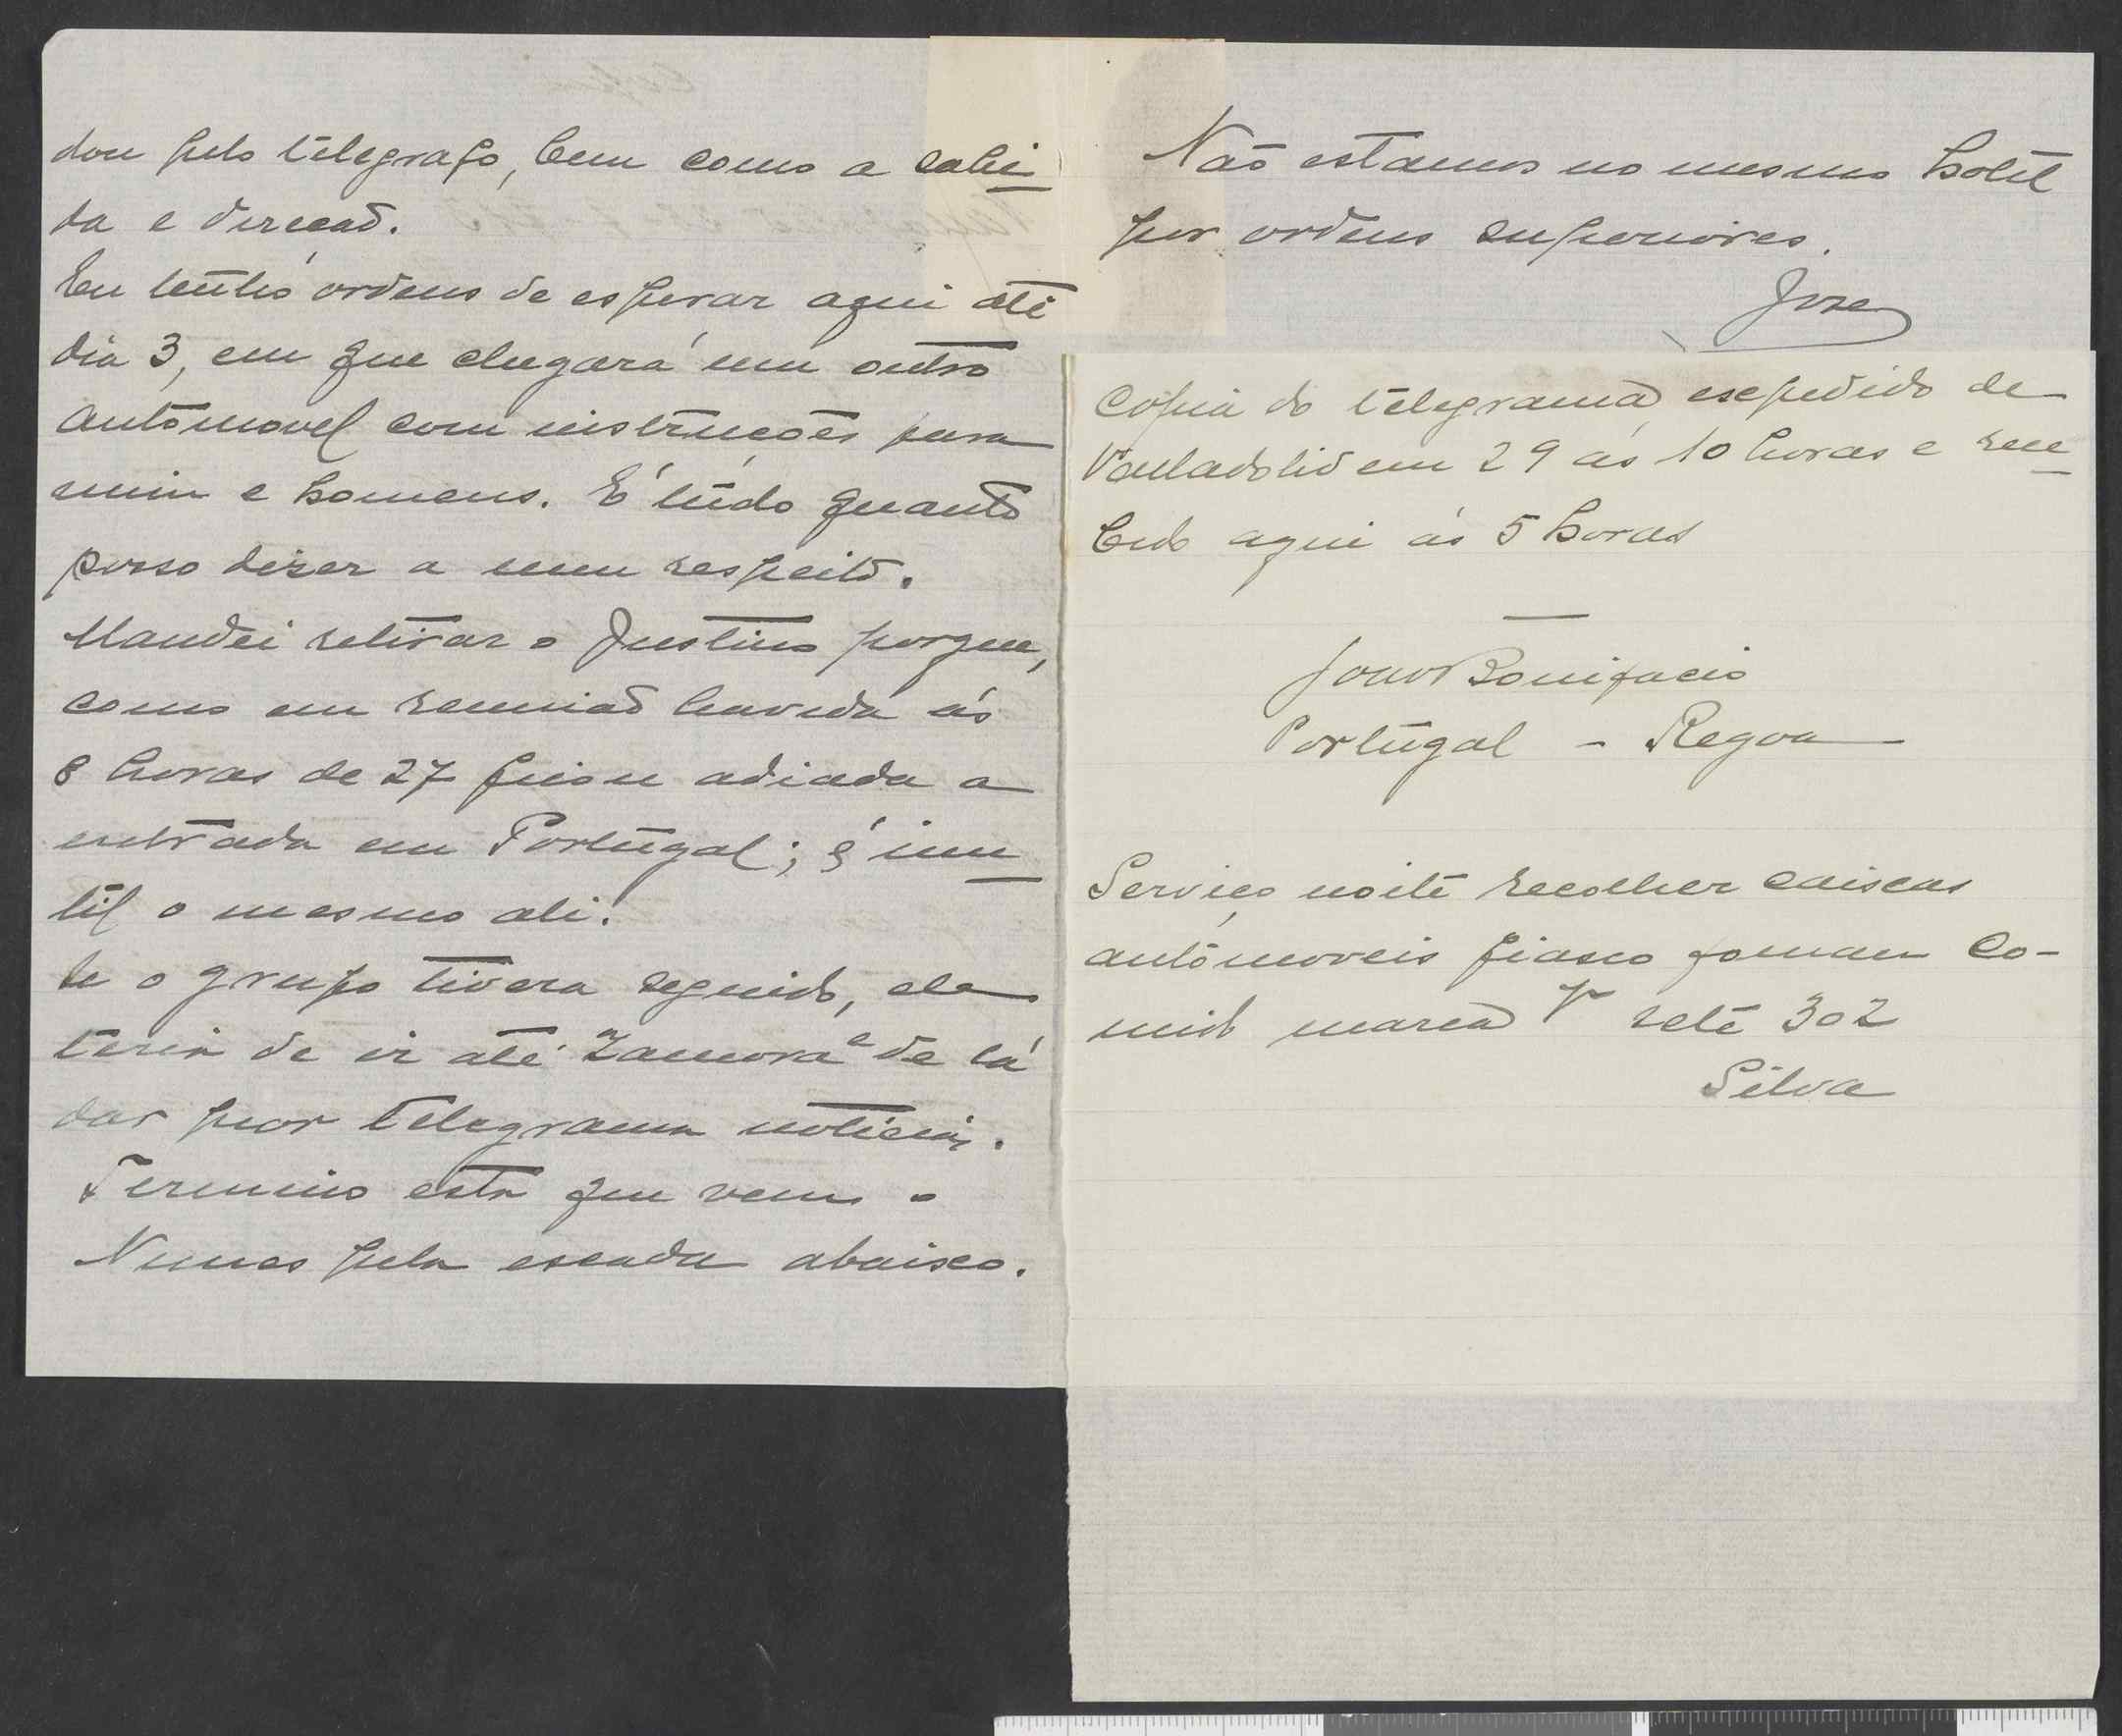 dou pelo telegrafo, bem como a sahi
da e direcção.
Eu tenho ordens de esperar aqui até
dia 3, em que chegará um outro
automovel com instrucções para
mim e homens. É tudo quanto
posso dizer a meu respeito.
Mandei retirar o Justino porque,
como em reunião havida ás
8 horas de 27 ficou adiada a
entrada em Portugal; é inu
til o mesmo ali.
Se o grupo tivera seguido, ele
teria de ir até Zamora e de lá
dar por telegrama noticias.
Termino esta que vem o
Nunes pela escada abaixo.
Não estamos no mesmo hotel
por ordens superiores.
José
Copia do telegrama expedido de
Valladolid em 29 ás 10 horas e rece
bido aqui ás 5 horas
João Bonifacio
Portugal - Regoa
Serviço noite recolher caixas
automoveis fiasco
marca sete 302
Silva